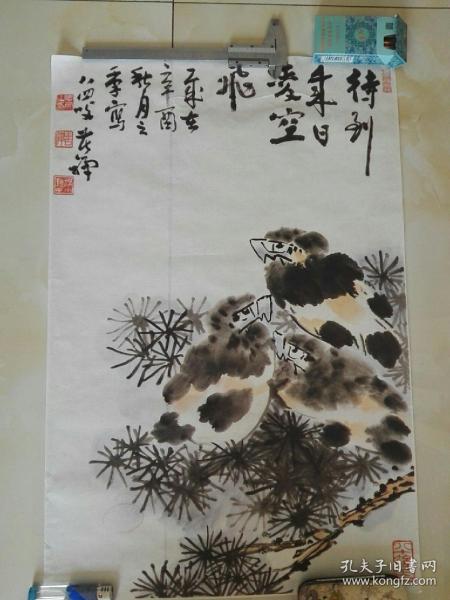 待到
来日
凌空
飛
岁在
辛酉
秋月之
季写
八四叟
孔夫子旧书网
www.kongfz.com